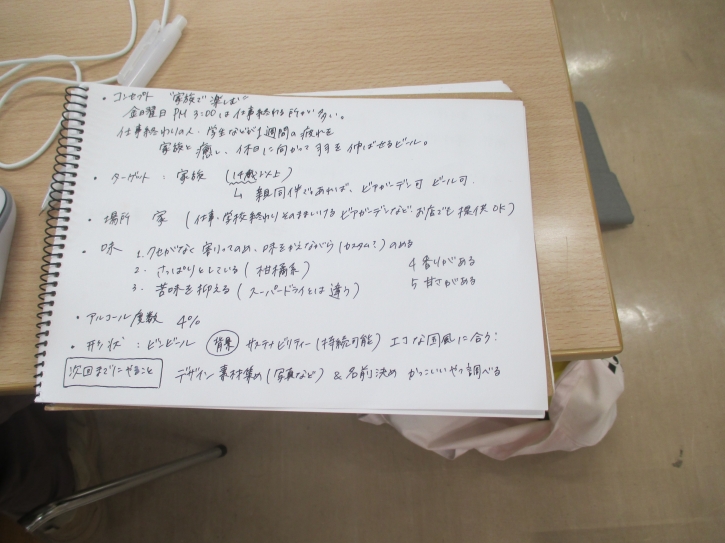 ・コンセプト "家族で楽しむ"
金曜日 PM 3:00は仕事終わる所が多い。
仕事終わりの人、学生などが1週間の疲れを
家族と癒し、休日に向かって羽を伸ばせるビール。
・ターゲット：家族 (14歳以上)
↳ 親同伴であれば、ビアガーデン可 ビール可
・場所 家 (仕事・学校終わりそのままいける ビアガーデンなど お店でも提供OK)
・味 1. クセがなく 味をかえながら(カスタム？)のめる
2. さっぱりとしている(柑橘系) 4 香りがある
3. 苦味を抑える(スーパードライとは違う) 5 甘さがある
・アルコール度数 4%
・形状：ビンビール 背景 サスティナビリティー(持続可能) エコな国風に合う
次回までにやること デザイン素材集め(写真など) & 名前決め かっこいいやつ調べる